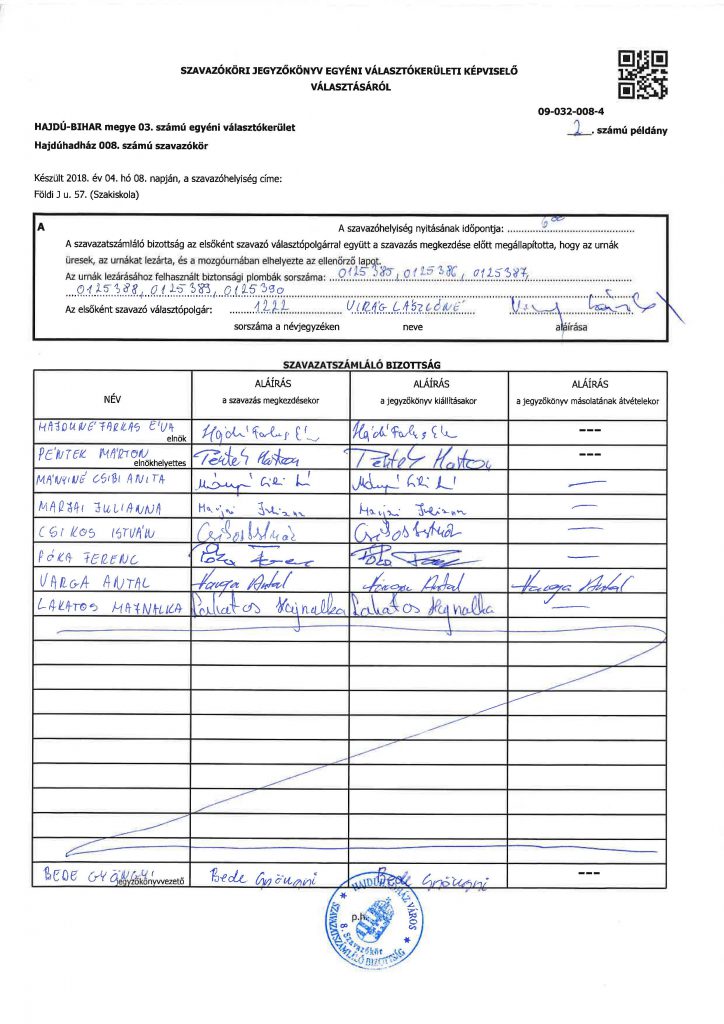 SZAVAZÓKÖRI JEGYZŐKÖNYV EGYÉNI VÁLASZTÓKERÜLETI KÉPVISELŐ
VÁLASZTÁSÁRÓL
09-032-008-4
HAJDÚ-BIHAR megye 03. számú egyéni választókerület
2. számú példány
Hajdúhadház 008. számú szavazókör
Készült 2018. év 04. hó 08. napján, a szavazóhelyiség címe:
Földi J u. 57. (Szakiskola)
A
A szavazóhelyiség nyitásának időpontja: 6 00
A szavazatszámláló bizottság az elsőként szavazó választópolgárral együtt a szavazás megkezdése előtt megállapította, hogy az urnák
üresek, az urnákat lezárta, és a mozgóurnában elhelyezte az ellenőrző lapot.
Az urnák lezárásához felhasznált biztonsági plombák sorszáma: 0125385, 0125386, 0125387,
0125388, 0125389, 0125390
Az elsőként szavazó választópolgár: 1222 VIRÁG LÁSZLÓNÉ
sorszáma a névjegyzéken neve aláírása
SZAVAZATSZÁMLÁLÓ BIZOTTSÁG
NÉV
ALÁÍRÁS
a szavazás megkezdésekor
ALÁÍRÁS
a jegyzőkönyv kiállításakor
ALÁÍRÁS
a jegyzőkönyv másolatának átvételekor
HAJDUNÉ FARKAS ÉVA
elnök
---
PÉNTEK MÁRTON
elnökhelyettes
---
MÁNYINÉ CSIBI ANITA
MARJAI JULIANNA
CSIKOS ISTVÁN
PÓKA FERENC
VARGA ANTAL Varga Antal Varga Antal Varga Antal
LAKATOS HAJNALKA Lakatos Hajnalka Lakatos Hajnalka
BEDE GYÖNGYI Bede Gyöngyi Bede Gyöngyi ---
jegyzőkönyvvezető
p.h.
HAJDÚHADHÁZ VÁROS
8. Szavazókör
SZAVAZATSZÁMLÁLÓ BIZOTTSÁG